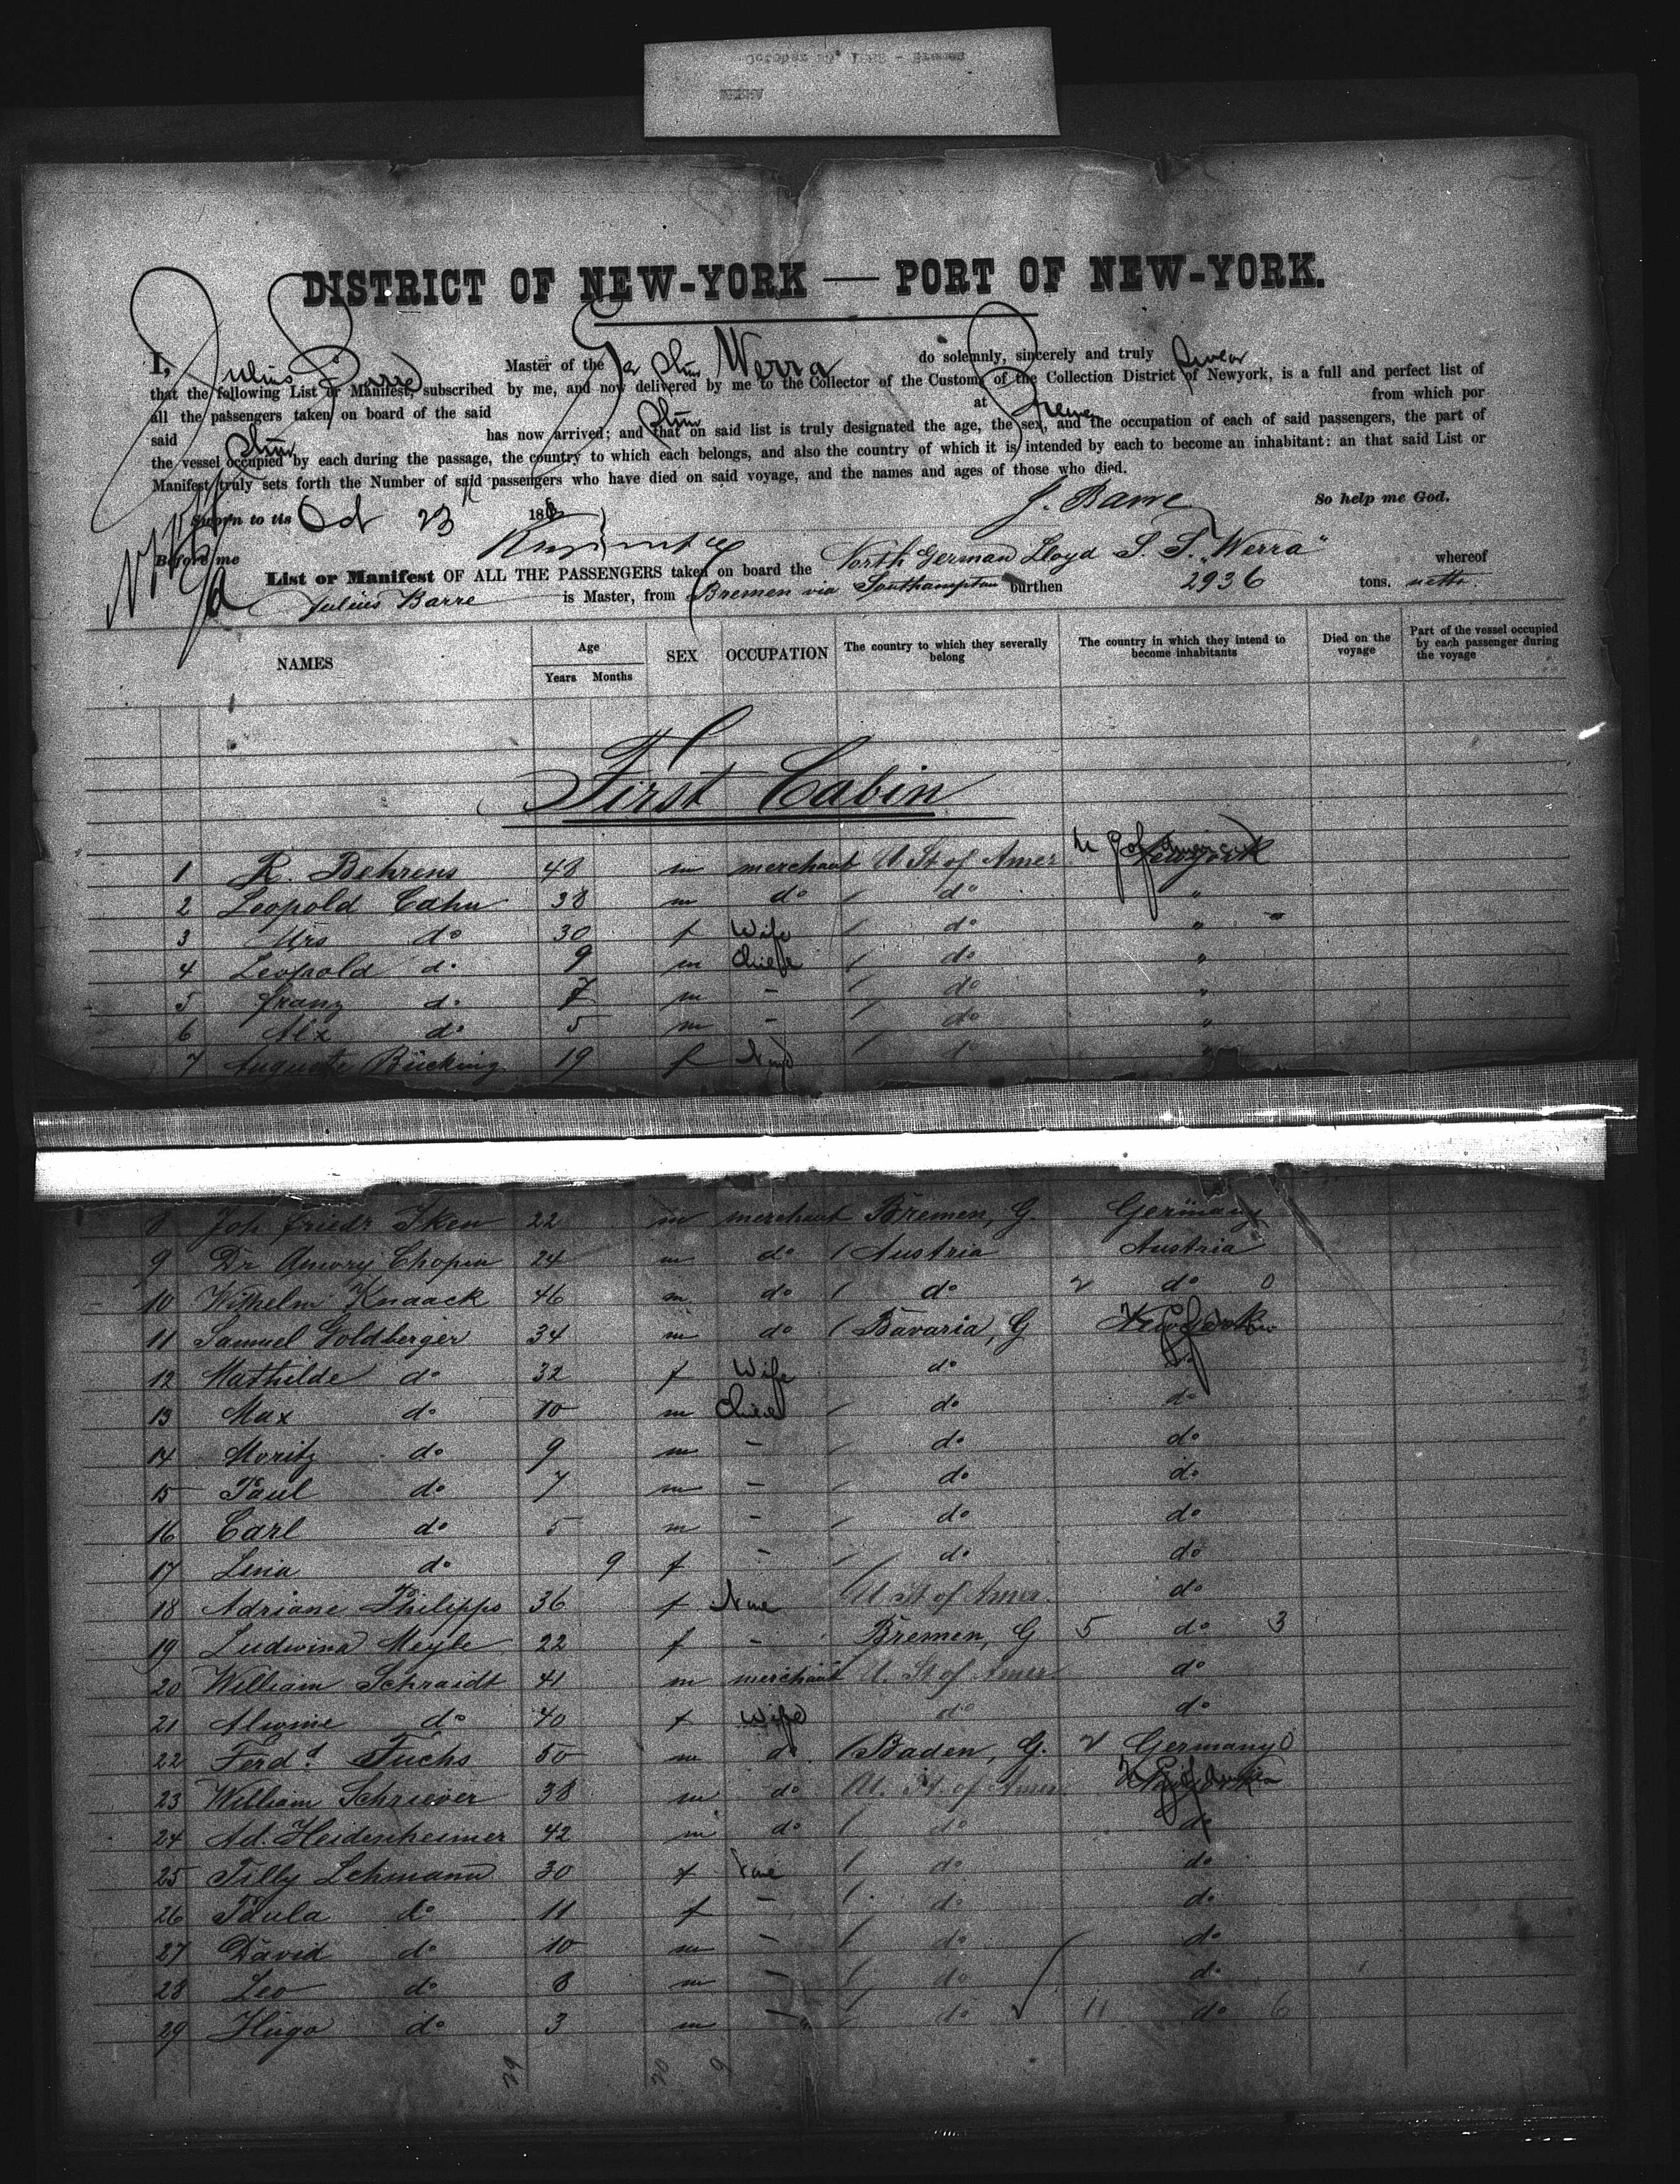 DISTRICT OF NEW-YORK — PORT OF NEW-YORK.
I, Julius Barre Master of the Ger Str Werra do solemnly, sincerely and truly swear
that the following List or Manifest, subscribed by me, and now delivered by me to the Collector of the Customs of the Collection District of Newyork, is a full and perfect list of
all the passengers taken on board of the said at Bremen from which por
said has now arrived; and that on said list is truly designated the age, the sex, and the occupation of each of said passengers, the part of
the vessel occupied by each during the passage, the country to which each belongs, and also the country of which it is intended by each to become an inhabitant: an that said List or
Manifest truly sets forth the Number of said passengers who have died on said voyage, and the names and ages of those who died.
J. Barre So help me God.
Sworn to tis Oct 23 188
Before me
List or Manifest OF ALL THE PASSENGERS taken on board the North German Lloyd S. S. "Werra" whereof
Julius Barre is Master, from Bremen via Southampton burthen 2936 tons. netto.
NAMES Age Years Months SEX OCCUPATION The country to which they severally belong The country in which they intend to become inhabitants Died on the voyage Part of the vessel occupied by each passenger during the voyage
First Cabin
1 R. Behrens 48 m merchant U St of Amer
2 Leopold Cahn 38 m do do "
3 Mrs do 30 f Wife do "
4 Leopold do 9 m Child do "
5 Franz do 7 m - do "
6 Alx do 5 m - do "
7 Auguste Bücking 19 f do "
8 Joh Friedr Iken 22 m merchant Bremen, G. Germany
9 Dr Amory Chopin 24 m do Austria Austria
10 Wilhelm Knaack 46 m do do 2 do 0
11 Samuel Goldberger 34 m do Bavaria, G
12 Mathilde do 32 f Wife do do
13 Max do 10 m Child do do
14 Moritz do 9 m - do do
15 Paul do 7 m - do do
16 Carl do 5 m - do do
17 Lina do 9 f - do do
18 Adriane Philipps 36 f None U St of Amer. do
19 Ludwina Meyle 22 f - Bremen, G 5 do 3
20 William Schmidt 41 m merchant U. St of Amer do
21 Alwine do 40 f Wife do do
22 Ferdd Fuchs 50 m do. Baden, G. 2 Germany 0
23 William Schriever 38 m do U. St. of Amer
24 Ad. Heidenheimer 42 m do do do
25 Tilly Lehmann 30 f None do do
26 Paula do 11 f - do do
27 David do 10 m - do do
28 Leo do 8 m - do do
29 Hugo do 3 m - do 11 do 6
29 20 9